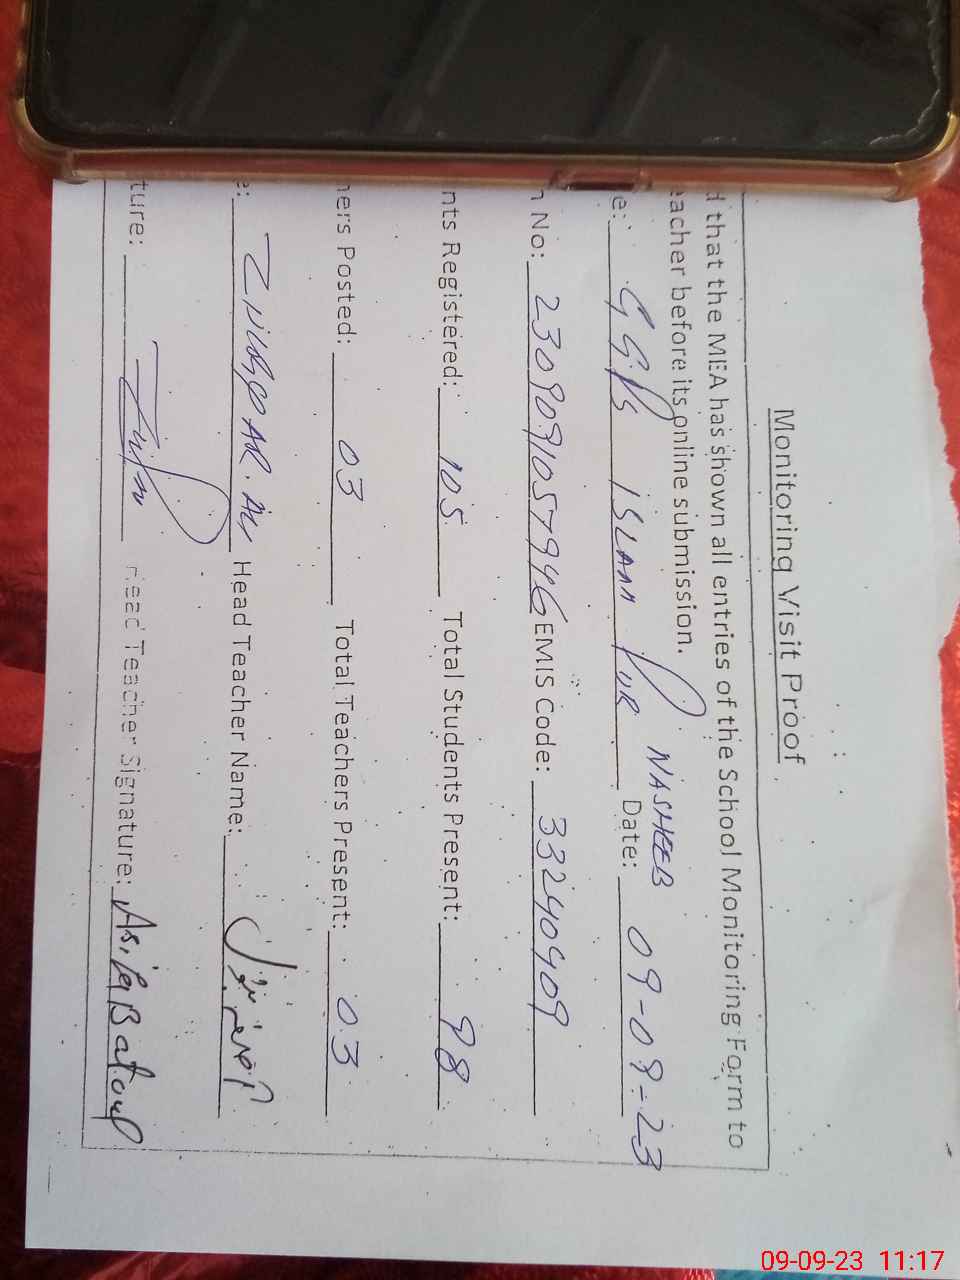 Monitoring Visit Proof
d that the MEA has shown all entries of the School Monitoring Form to
eacher before its online submission.
e: GGPS ISLAM PUR NASHEEB Date: 09-09-23
n No: 2309091057946 EMIS Code: 33240409
nts Registered: 105 Total Students Present: 98
ners Posted: 03 Total Teachers Present: 03
e: ZULIFQAR. ALI Head Teacher Name:
ture: Head Teacher Signature: Asifa Batoul
09-09-23 11:17